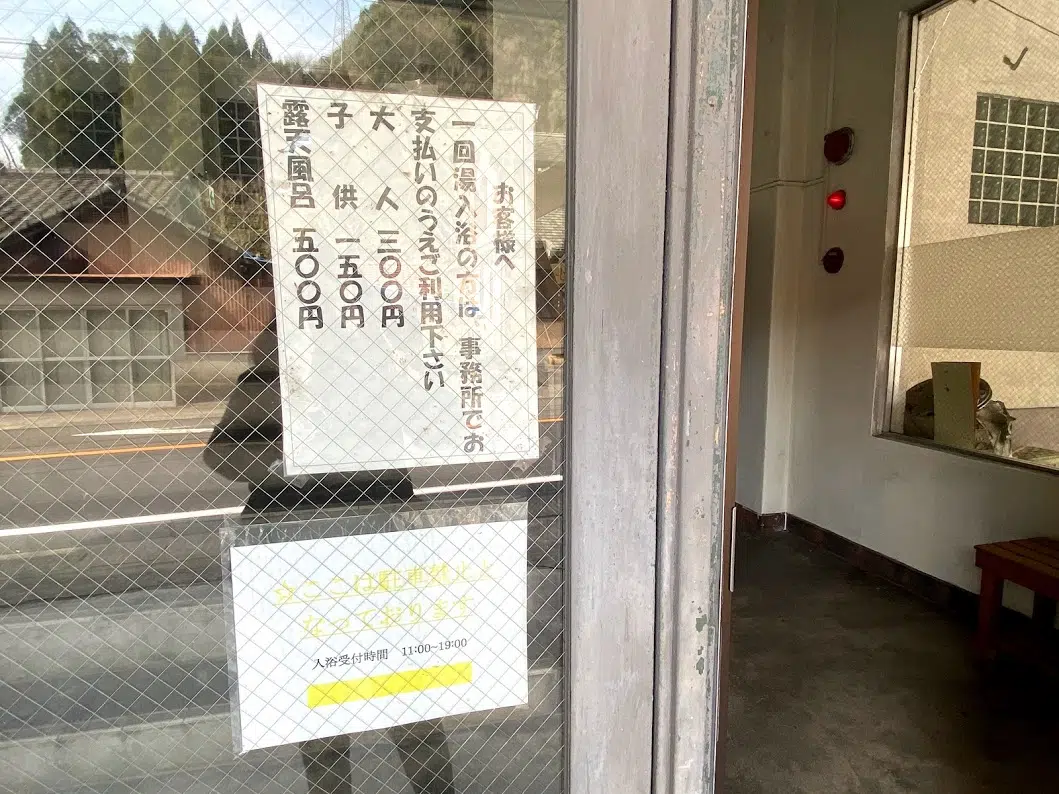 お客様へ
一回湯入浴の方は、事務所でお
支払いのうえご利用下さい
大人 三〇〇円
子供 一五〇円
露天風呂 五〇〇円
☆ここは駐車禁止と
なっております
入浴受付時間 11:00~19:00